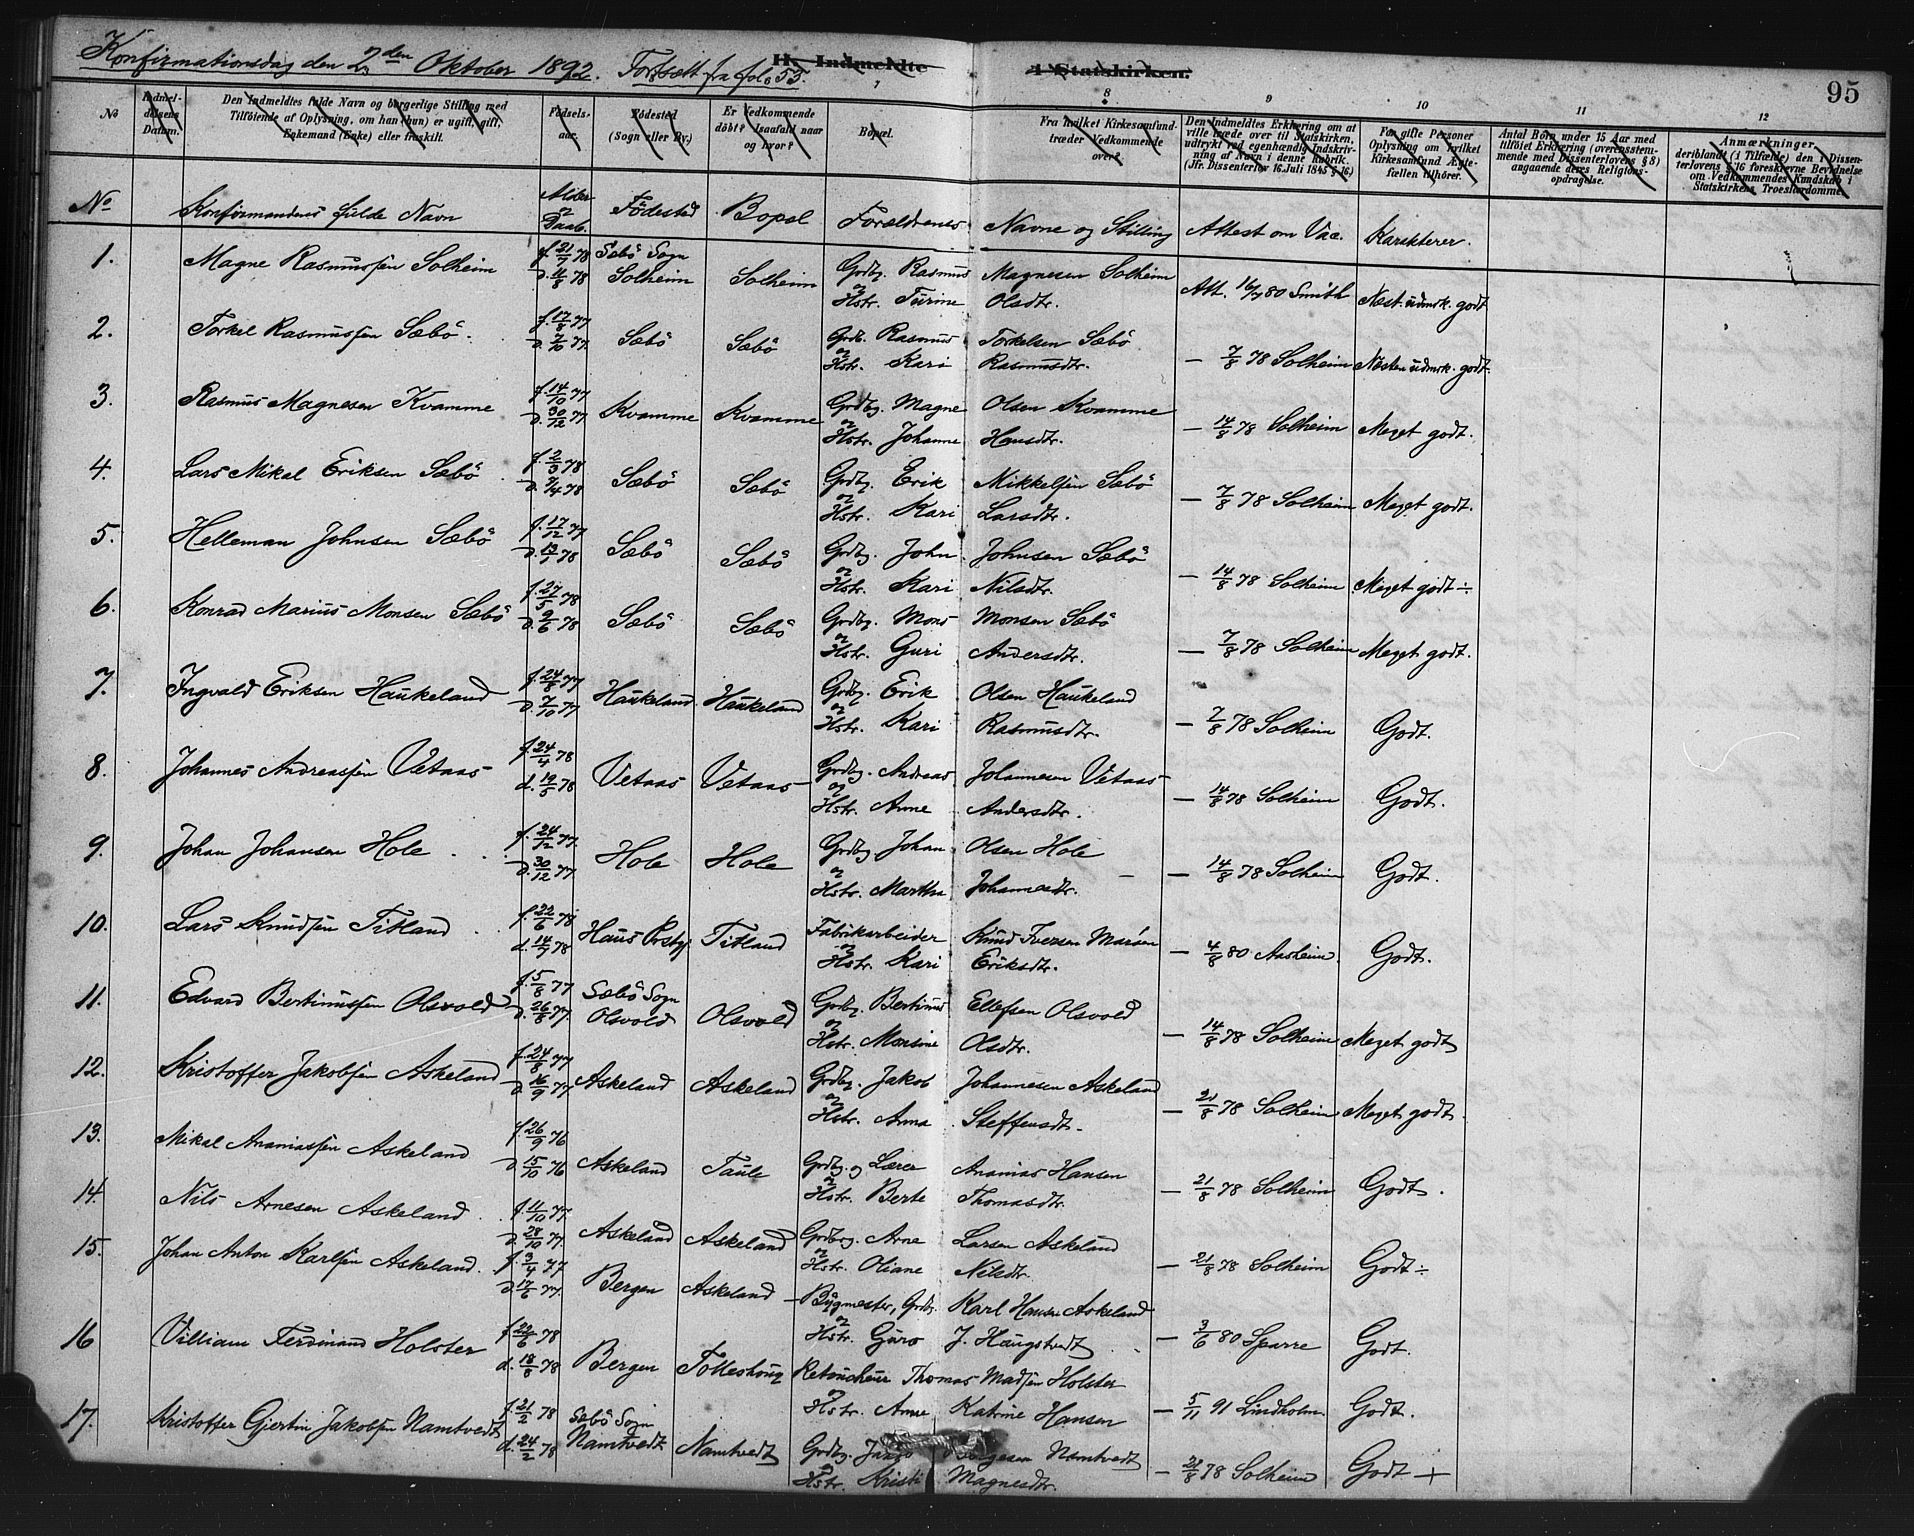 Konfirmationsdag den 2den Oktober 1892. Fortsætt fra fol. 53.
H. Indmeldte i Statskirken.
95
No
Indmeldelsens Datum.
Den Indmeldtes fulde Navn og borgerlige Stilling med Tilføiende af Oplysning, om han (hun) er ugift, gift, Enkemand (Enke) eller fraskilt.
Fødsels-aar.
Fødested (Sogn eller By.)
Er Vedkommende døbt? Isaafald naar og hvor?
7
Bopæl.
8
Fra hvilket Kirkesamfund træder Vedkommende over?
9
Den Indmeldtes Erklæring om at ville træde over til Statskirken, udtrykt ved egenhændig Indskrivning af Navn i denne Rubrik. (Jfr. Dissenterlov 16 Juli 1845 § 16)
10
For gifte Personer Oplysning om hvilket Kirkesamfund Ægtefællen tilhører.
11
Antal Børn under 15 Aar med tilføiet Erklæring (overensstemmende med Dissenterlovens § 8) angaaende deres Religionsopdragelse.
12
Anmerkninger, deriblandt (i Tilfælde) den i Dissenterlovens § 16 foreskrevne Bevidnelse om Vedkommendes Kundskab i Statskirkens Troeslærdomme.
No Konfirmandens fulde Navn Födested Bopæl Forældrenes Navne og Stilling Attest om Vac. Karakterer.
1. Magne Rasmussen Solheim f. 21/7 78 d. 11/8 78 Sæbö Sogn Solheim Solheim Grdbg. Rasmus Magnesen Solheim og Hstr. Turine Olsdtr. Att. 16/7 80 Smith Næst. udmrk. godt
2. Torkel Rasmussen Sæbö. f. 17/8 77 d. 7/10 77. Sæbö Sæbö Grdb. Rasmus Torkelsen Sæbö og Hstr. Kari Rasmusdtr. — 7/8 78 Solheim Næsten udmrk. godt.
3. Rasmus Magnesen Kvamme f. 14/10 77 d. 30/12 77 Kvamme Kvamme Grdbg. Magne Olsen Kvamme og Hstr. Johanne Hansdtr. — 14/8 78 Solheim Meget godt.
4. Lars Mikal Eriksen Sæbö f. 2/3 78 d. 7/4 78 Sæbö Sæbö Grdbg. Erik Mikkelsen Sæbö og Hstr. Kari Larsdtr. — 7/8 78 Solheim Meget godt.
5. Helleman Johnsen Sæbö f. 17/12 77 Sæbö Sæbö Grdbg. John Johnsen Sæbö og Hstr. Kari Nilsdtr. — 14/8 78 Solheim Meget godt ÷
6. Konrad Marius Monsen Sæbö f. 27/5 78 d. 9/6 78 Sæbö Sæbö Grdbg. Mons Monsen Sæbö og Hstr. Guri Andersdtr. — 7/8 78 Solheim Meget godt.
7. Ingvald Eriksen Haukeland f. 24/8 77 d. 7/10 77 Haukeland Haukeland Grdbg. Erik Olsen Haukeland og Hstr. Kari Rasmusdtr. — 7/8 78 Solheim Godt.
8. Johannes Andreassen Vetaas f. 24/4 78 d. 19/5 78 Vetaas Vetaas Grdbg. Andreas Johannesen Vetaas og Hstr. Anne Andersdtr. — 14/8 78 Solheim Godt.
9. Johan Johansen Hole f. 24/12 77. d. 30/12 77 Hole Hole Grdbg Johan Olsen Hole og Hstr. Martha Johannesdtr. — 14/8 78 Solheim Godt.
10. Lars Knudsen Titland f. 22/6 78 d. 14/7 78 Haus Titland Fabrikarbeider Knud Iversen og Hstr. Kari Eriksdtr. — 4/8 80 Aasheim. Godt.
11. Edvard Bertinussen Olsvold f. 5/8 77 d. 26/8 77. Sæbö Sogn Olsvold Olsvold Grdbg. Bertinus Ellefsen Olsvold og Hstr. Marsine Olsdtr. — 14/8 78 Solheim Meget godt
12. Kristoffer Jakobsen Askeland f. 24/8 77 d. 16/9 77 Askeland Askeland Grdbg. Jakob Johannesen Askeland og Hstr. Anna Steffensdtr. — 21/8 78 Solheim Meget godt.
13. Mikal Ananiassen Askeland f. 26/9 76 d. 15/10 76 Askeland Taule Grdbg. og Lærer Ananias Hansen og Hstr. Berte Thomasdtr. — 21/8 78 Solheim Godt.
14. Nils Arnesen Askeland f. 11/10 77. d. 28/10 77. Askeland Askeland Grdbrg. Arne Larsen Askeland og Hstr. Oliane Nilsdtr. — 21/8 78 Solheim Godt ÷
15. Johan Anton Karlsen Askeland. f. 3/4 77 d. 17/6 77. Bergen Askeland Bygmester, Grdbr. Karl Hansen Askeland og Hstr. Guro J. Haugstvedt. — 3/6 80 Sparre Godt.
16 Villiam Ferdinand Holster f. 22/6 78 d. 18/8 78 Bergen Retoucheur Thomas Madsen Holster og Hstr. Anne Katrine Hansen — 5/11 91 Lindholm. Godt.
17. Kristoffer Gjertin Jakobsen Namtvedt f. 21/2 78 d. 24/2 78 Sæbö Sogn Namtvedt Namtvedt Grdbg. Namtvedt og Hstr. Kristi Magnesdtr. — 21/8 78 Solheim Godt +